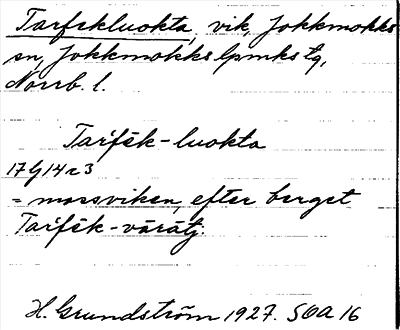 Tarfekluokta, vik, Jokkmokks
sn, Jokkmokks lpmks tg,
Norrb. l.
Tarfēk-luokta
17 G 14 a 3
= mossviken, efter berget
Tarfēk-vārātj.
H. Grundström 1927. SOA 16